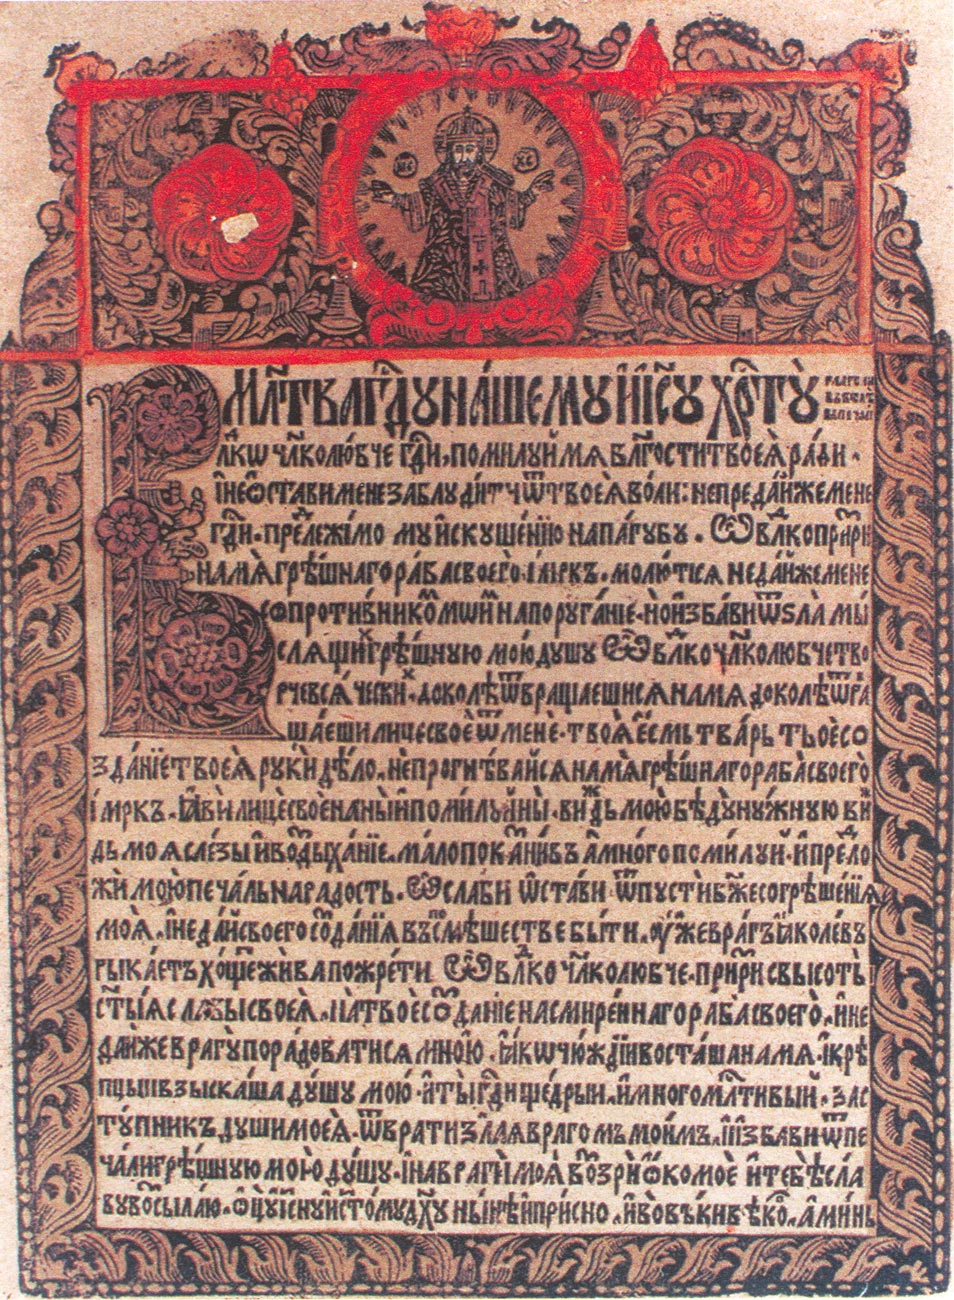 ІС ХС
Мл҃тва гдⷭ҇у на́шему і҆и҃су х҃рту̀
В лⷣкѡ чл҃колю́бче гдⷭ҇и, поми́луй мѧ бл҃гости твоеѧ̀ ра́ди
и҆ не ѡ҆ста́ви мене заблуди́ти ѿ твоеѧ̀ во́ли: не преда́йже мене
гдⷭ҇и. предлежи́мому и҆скуше́нїю на па́губу. Ѽ влⷣко при́зри
на мѧ̀ грѣ́шнаго раба̀ своего. і҆мⷬ҇къ. молю́тисѧ не да́йже мене
сопроти́вникоⷨ мои́ⷨ на поруга́нїе. но и҆зба́ви ѿ ѕла мы́
слѧщиⷯ грѣ́шную мою̀ ду́шу Ѽ влⷣко чл҃колю́бче тво́
рче всѧ́ческиⷯ. доко́лѣ ѿвраща́ешисѧ на мѧ̀ доко́лѣ ѿвра
ща́еши лицѐ своѐ ѿ мене. твоѧ̀ е҆́смь тва́рь твоѐ со
зда́нїе твоеѧ̀ рукѝ дѣ́ло. не прогнѣ́вайсѧ на мѧ̀ грѣ́шнаго раба̀ своего̀
і҆мⷬ҇къ. ꙗ҆вѝ лицѐ своѐ на ны̀ и҆ поми́луй ны̀. ви́жⷣь мою̀ бѣду̀ ну́жную ви́
дь моѧ̀ сле́зы и҆ воздыха́нїе. ма́ло пока́ѧниѧ а҆ мно́го поми́луй. и҆ предло
жѝ мою̀ печа́ль на ра́дость. Ѽ сла́би ѡ҆ста́ви ѿпустѝ бж҃е согрѣше́нїѧ
моѧ̀. и҆ не да́й своего̀ созда́нїѧ въ посмѣ́шестве бы́ти. у҆же вра́гъ ꙗ҆́ко левъ
рыка́етъ хо́щеⷮ жи́ва пожре́ти. Ѽ влⷣко чл҃колю́бче. при́зри с высоты̀
ст҃ы́ѧ сла́вы своеѧ̀. на твоѐ созда́нїе на смире́ннаго раба̀ своего̀. и҆ не
да́йже врагу̀ пора́доватисѧ мно́ю. ꙗ҆́кѡ чю́ждїи воста́ша на мѧ. и҆ крѣ́
пцыи взыска́ша ду́шу мою̀. и҆ ты̀ гдⷭ҇и ще́дрыи, и҆ многомл҃тивый. зас
ту́пникъ душѝ моеѧ̀. ѿвратѝ зла́ѧ враго́мъ мои́мъ. и҆ и҆зба́ви ѿ пе
ча́ли грѣ́шную мою̀ ду́шу. и҆ на врагѝ моѧ̀ воззрѝ ѻ҆́ко моѐ и҆ тебѣ̀ сла́
ву возсыла́ю. ѻ҆ц҃у̀ и҆ сн҃у и҆ ст҃о́му дх҃у нн҃ѣ и҆ при́сно. и҆ во вѣ́ки вѣко́ⷨ. а҆ми́нь